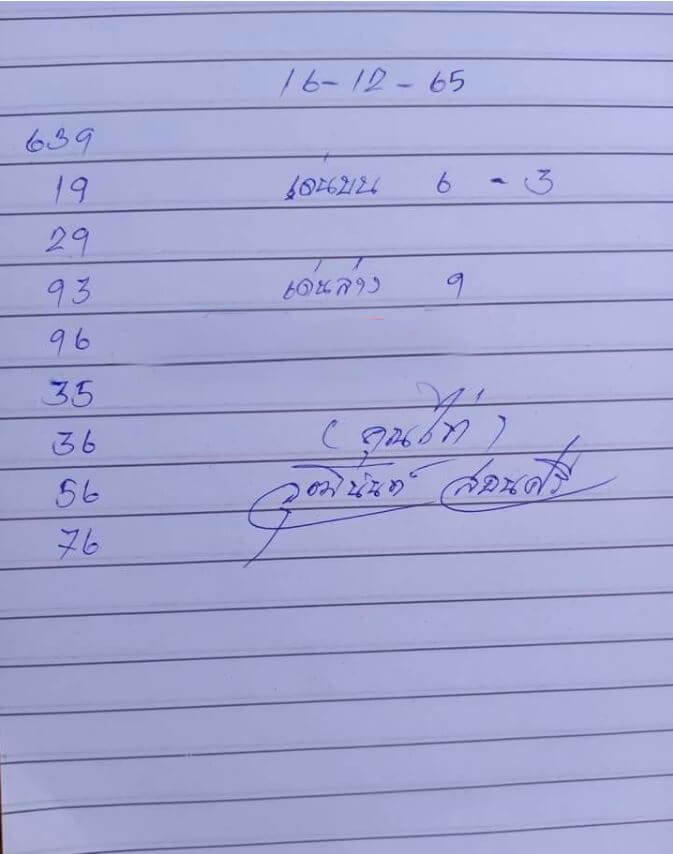 16-12-65
639
19 เด่นบน 6 - 3
29
93 เด่นล่าง 9
96
35
36
56
76